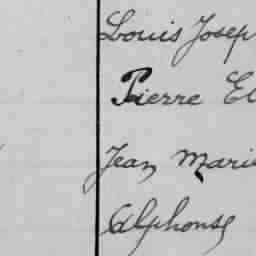 Louis Josep
Pierre El
Jean Marie
Alphonse